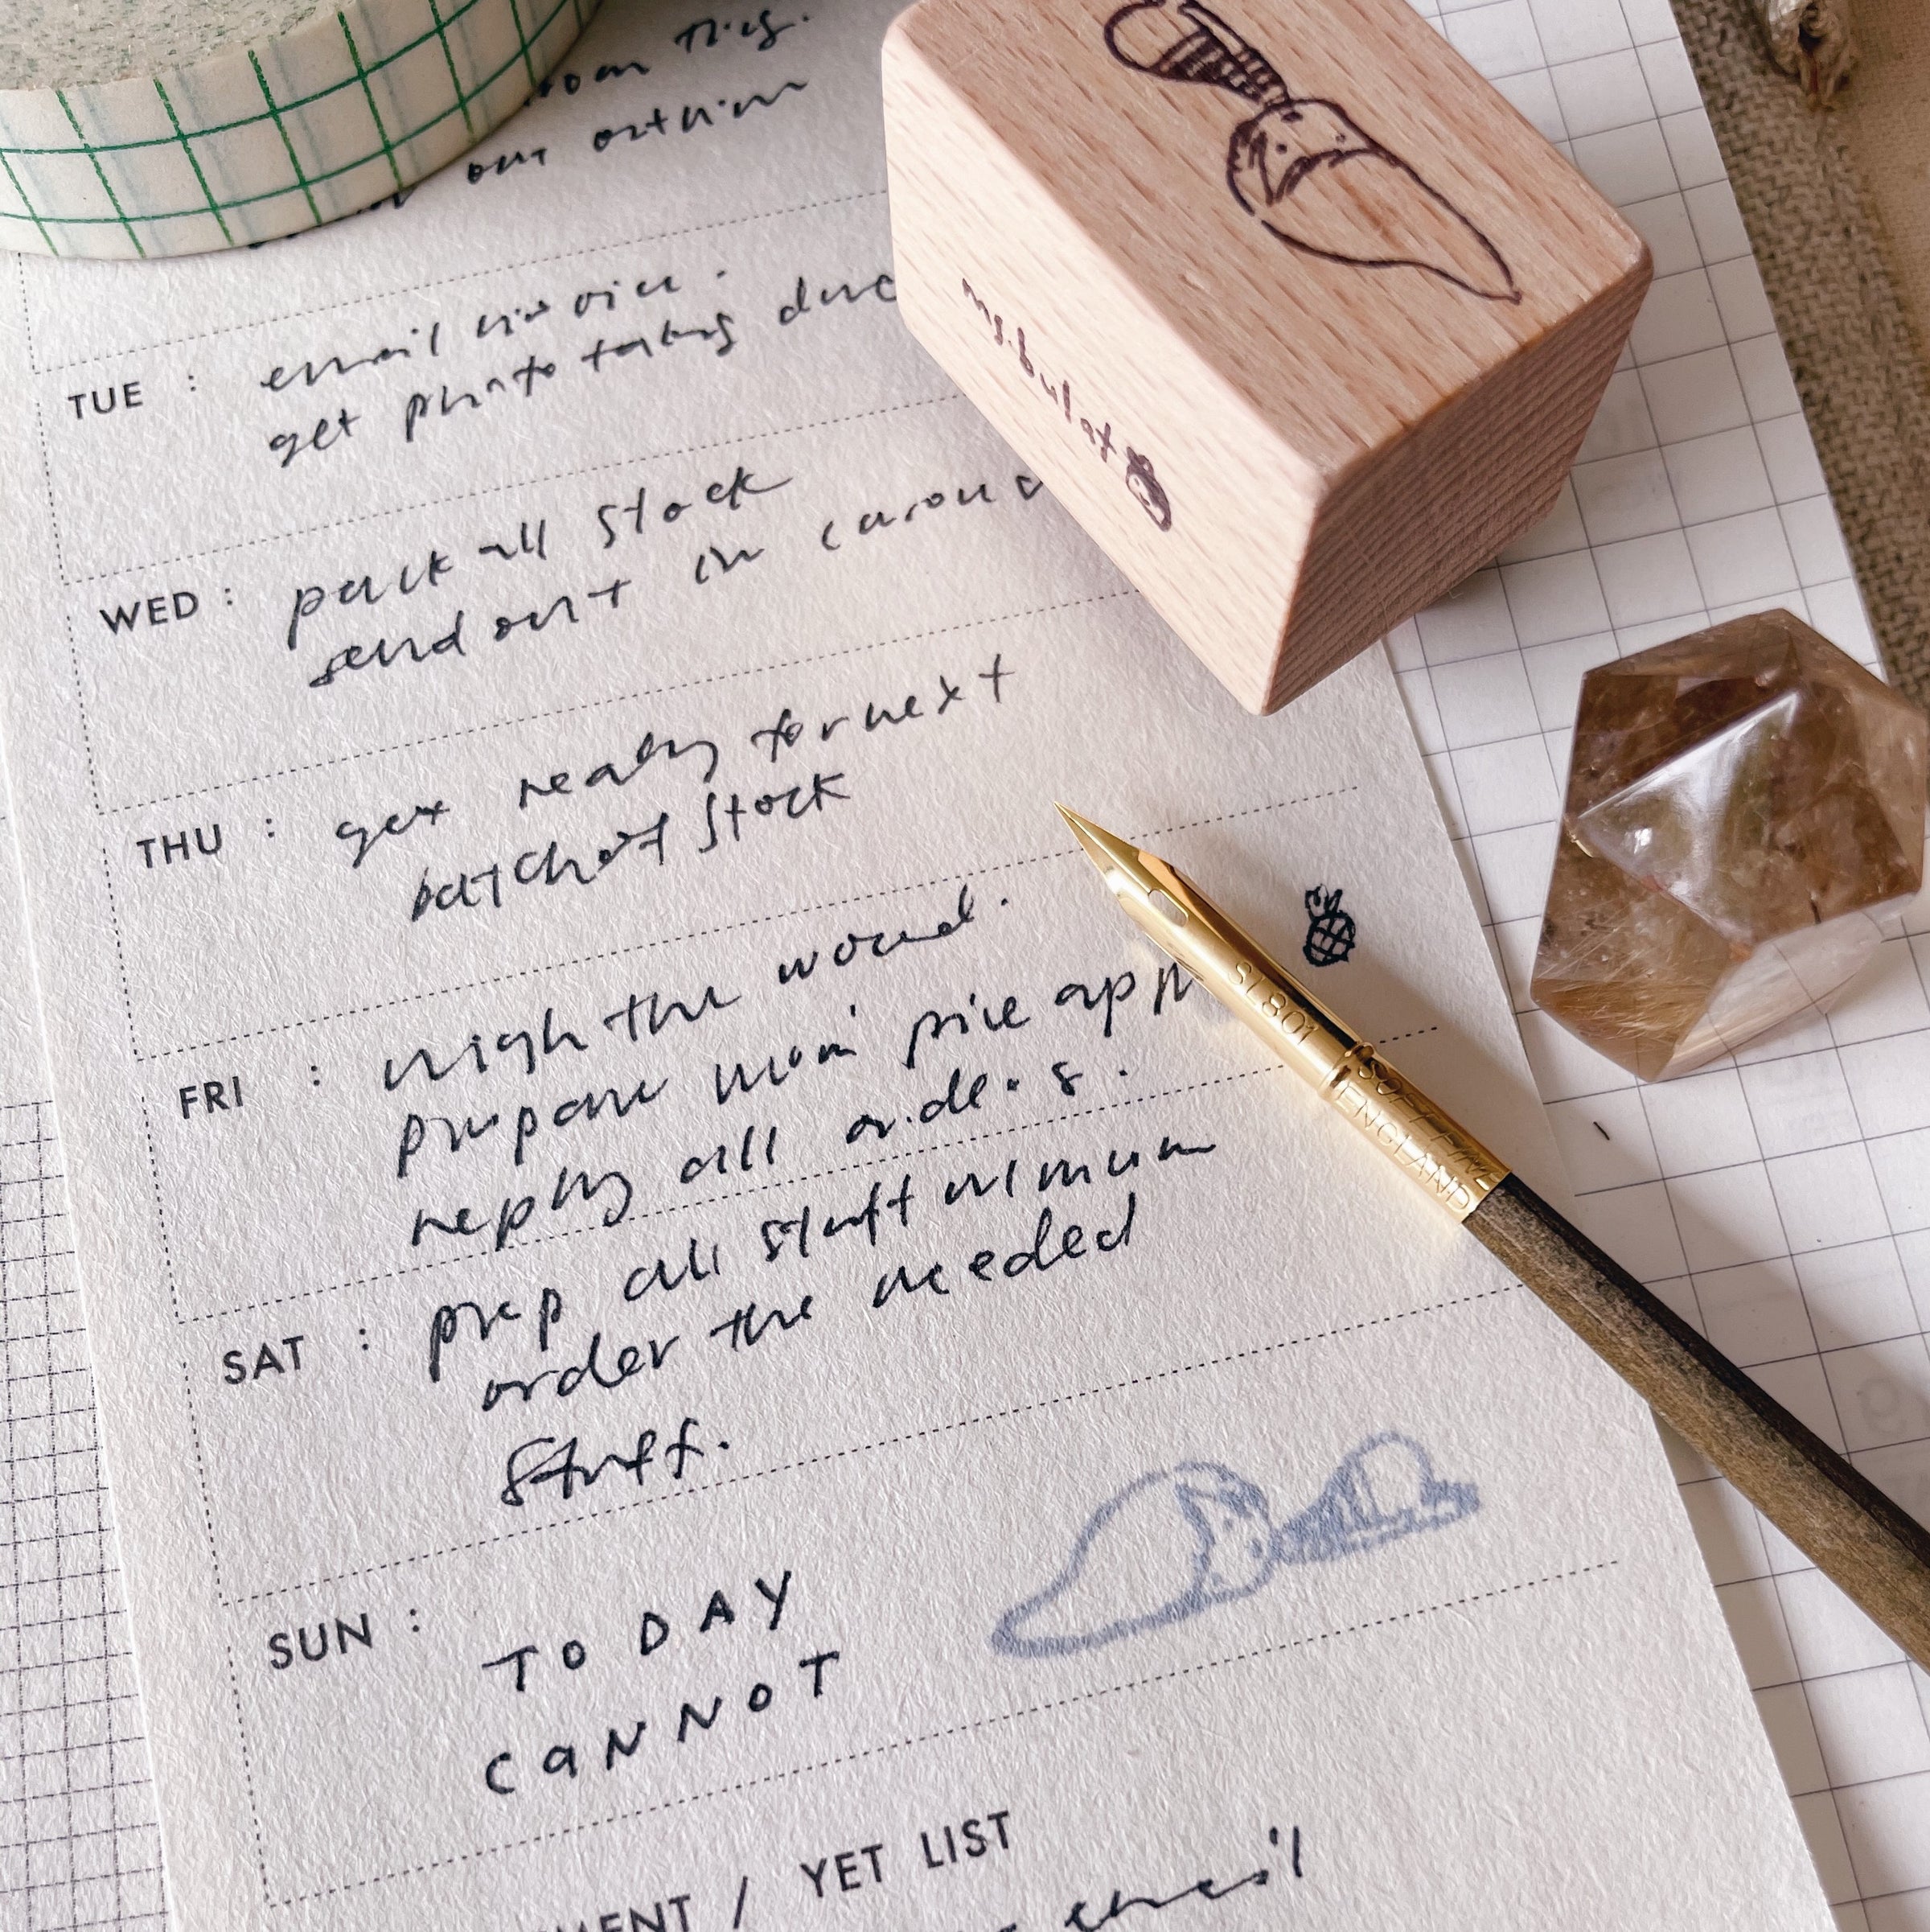 out
TUE : email invoice.
get photo taking
WED : pack all stock
send out in
THU : get ready for next
batch of stock
FRI : weigh the wound.
prepare mom' pine app
reply all orders.
SAT : prep all stuff
order the needed
stuff.
SUN : TODAY
CANNOT
/ YET LIST
ms.bulat
SL801
ENGLAND